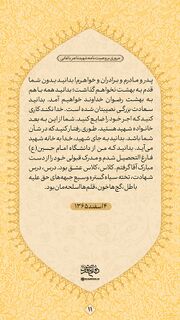 مروری بر وصیت‌نامه شهید ناصر باغانی
پدر و مادرم و برادران و خواهرم! بدانید بدون شما
قدم به بهشت نخواهم گذاشت؛ بدانید همه با هم
به بهشت رضوان خداوند خواهیم آمد. بدانید
سعادت بزرگی نصیبتان شده است. خدا نکند کاری
کنید که اجر خود را ضایع کنید. شما از این به بعد
خانواده شهید هستید. طوری رفتار کنید که در شأن
شما باشد. بدانید به جای شهید، خدا به خانه شهید
می‌آید. بدانید که من از دانشگاه امام حسین(ع)
فارغ‌التحصیل شدم و مدرک قبولی خود را از دست
مبارک آقا گرفتم. کلاس، کلاس عشق بود. درس، درس
شهادت، تخته سیاه گستره وسیع جبهه‌های حق علیه
باطل، گچ‌ها خون، قلم‌ها اسلحه‌مان بود.
۴ اسفند ۱۳۶۵
۱۱